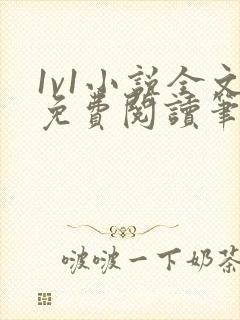 1v1小説全文
免費閱讀筆
啵啵一下奶茶